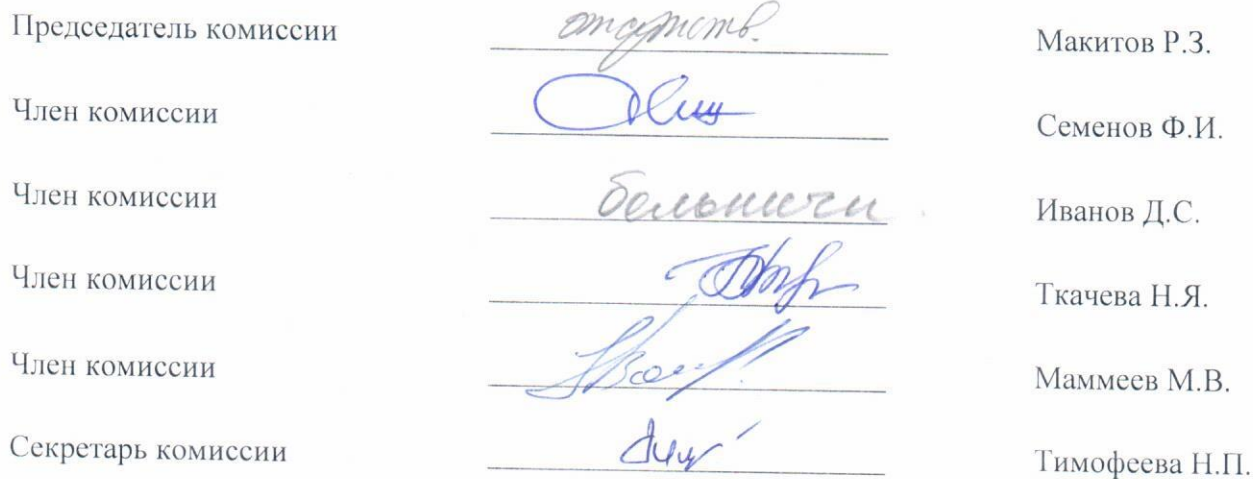 Председатель комиссии отсутств. Макитов Р.З.
Член комиссии Семенов Ф.И.
Член комиссии больничн Иванов Д.С.
Член комиссии Ткачева Н.Я.
Член комиссии Маммеев М.В.
Секретарь комиссии Тимофеева Н.П.